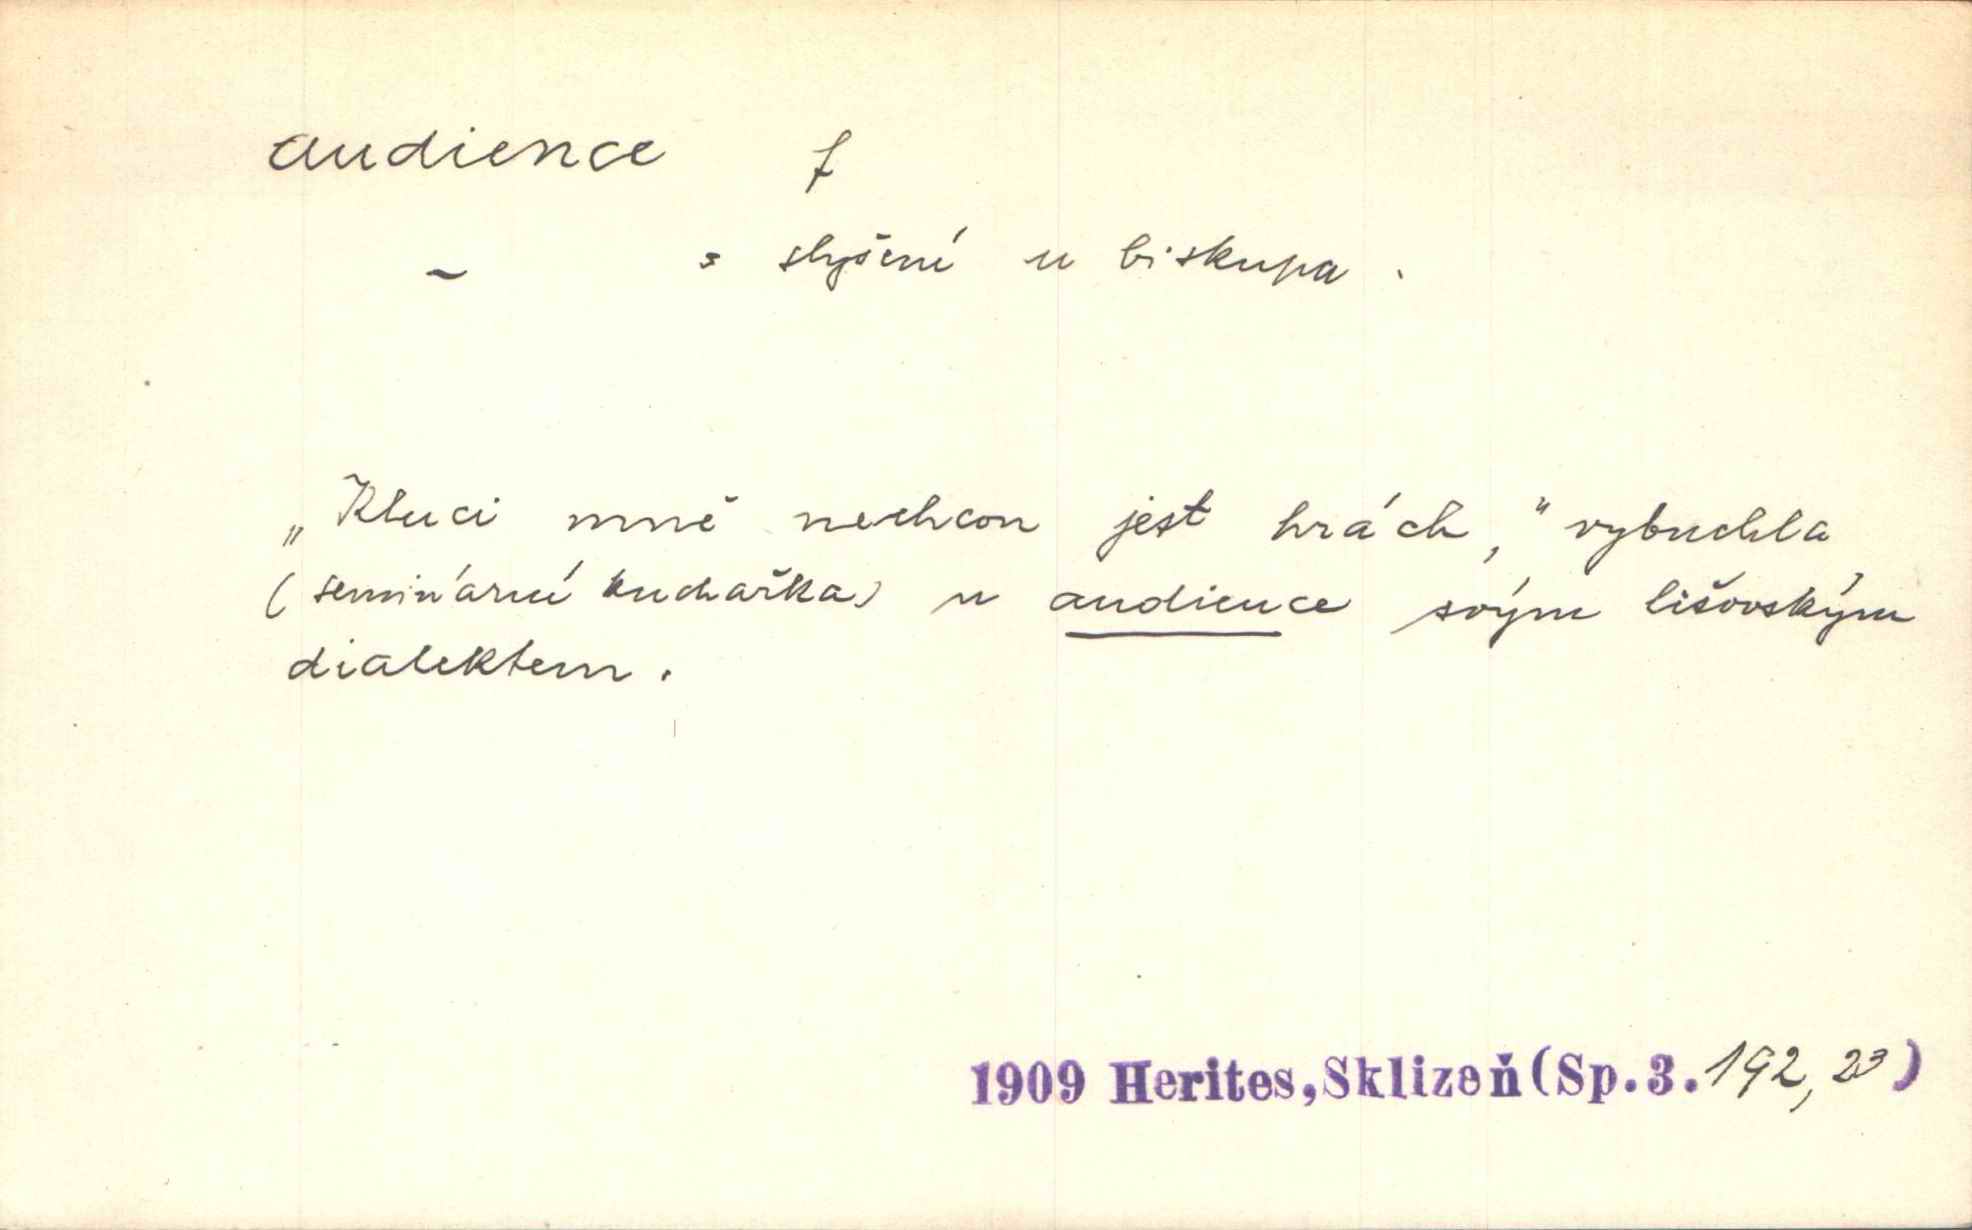 audience f
~ = slyšení u biskupa.
„Kluci mně nechcou jest hrách,“ vybuchla
(seminární kuchařka) u audience svým lišovským
dialektem.
1909 Herites, Sklizeň (Sp. 3. 192, 23)